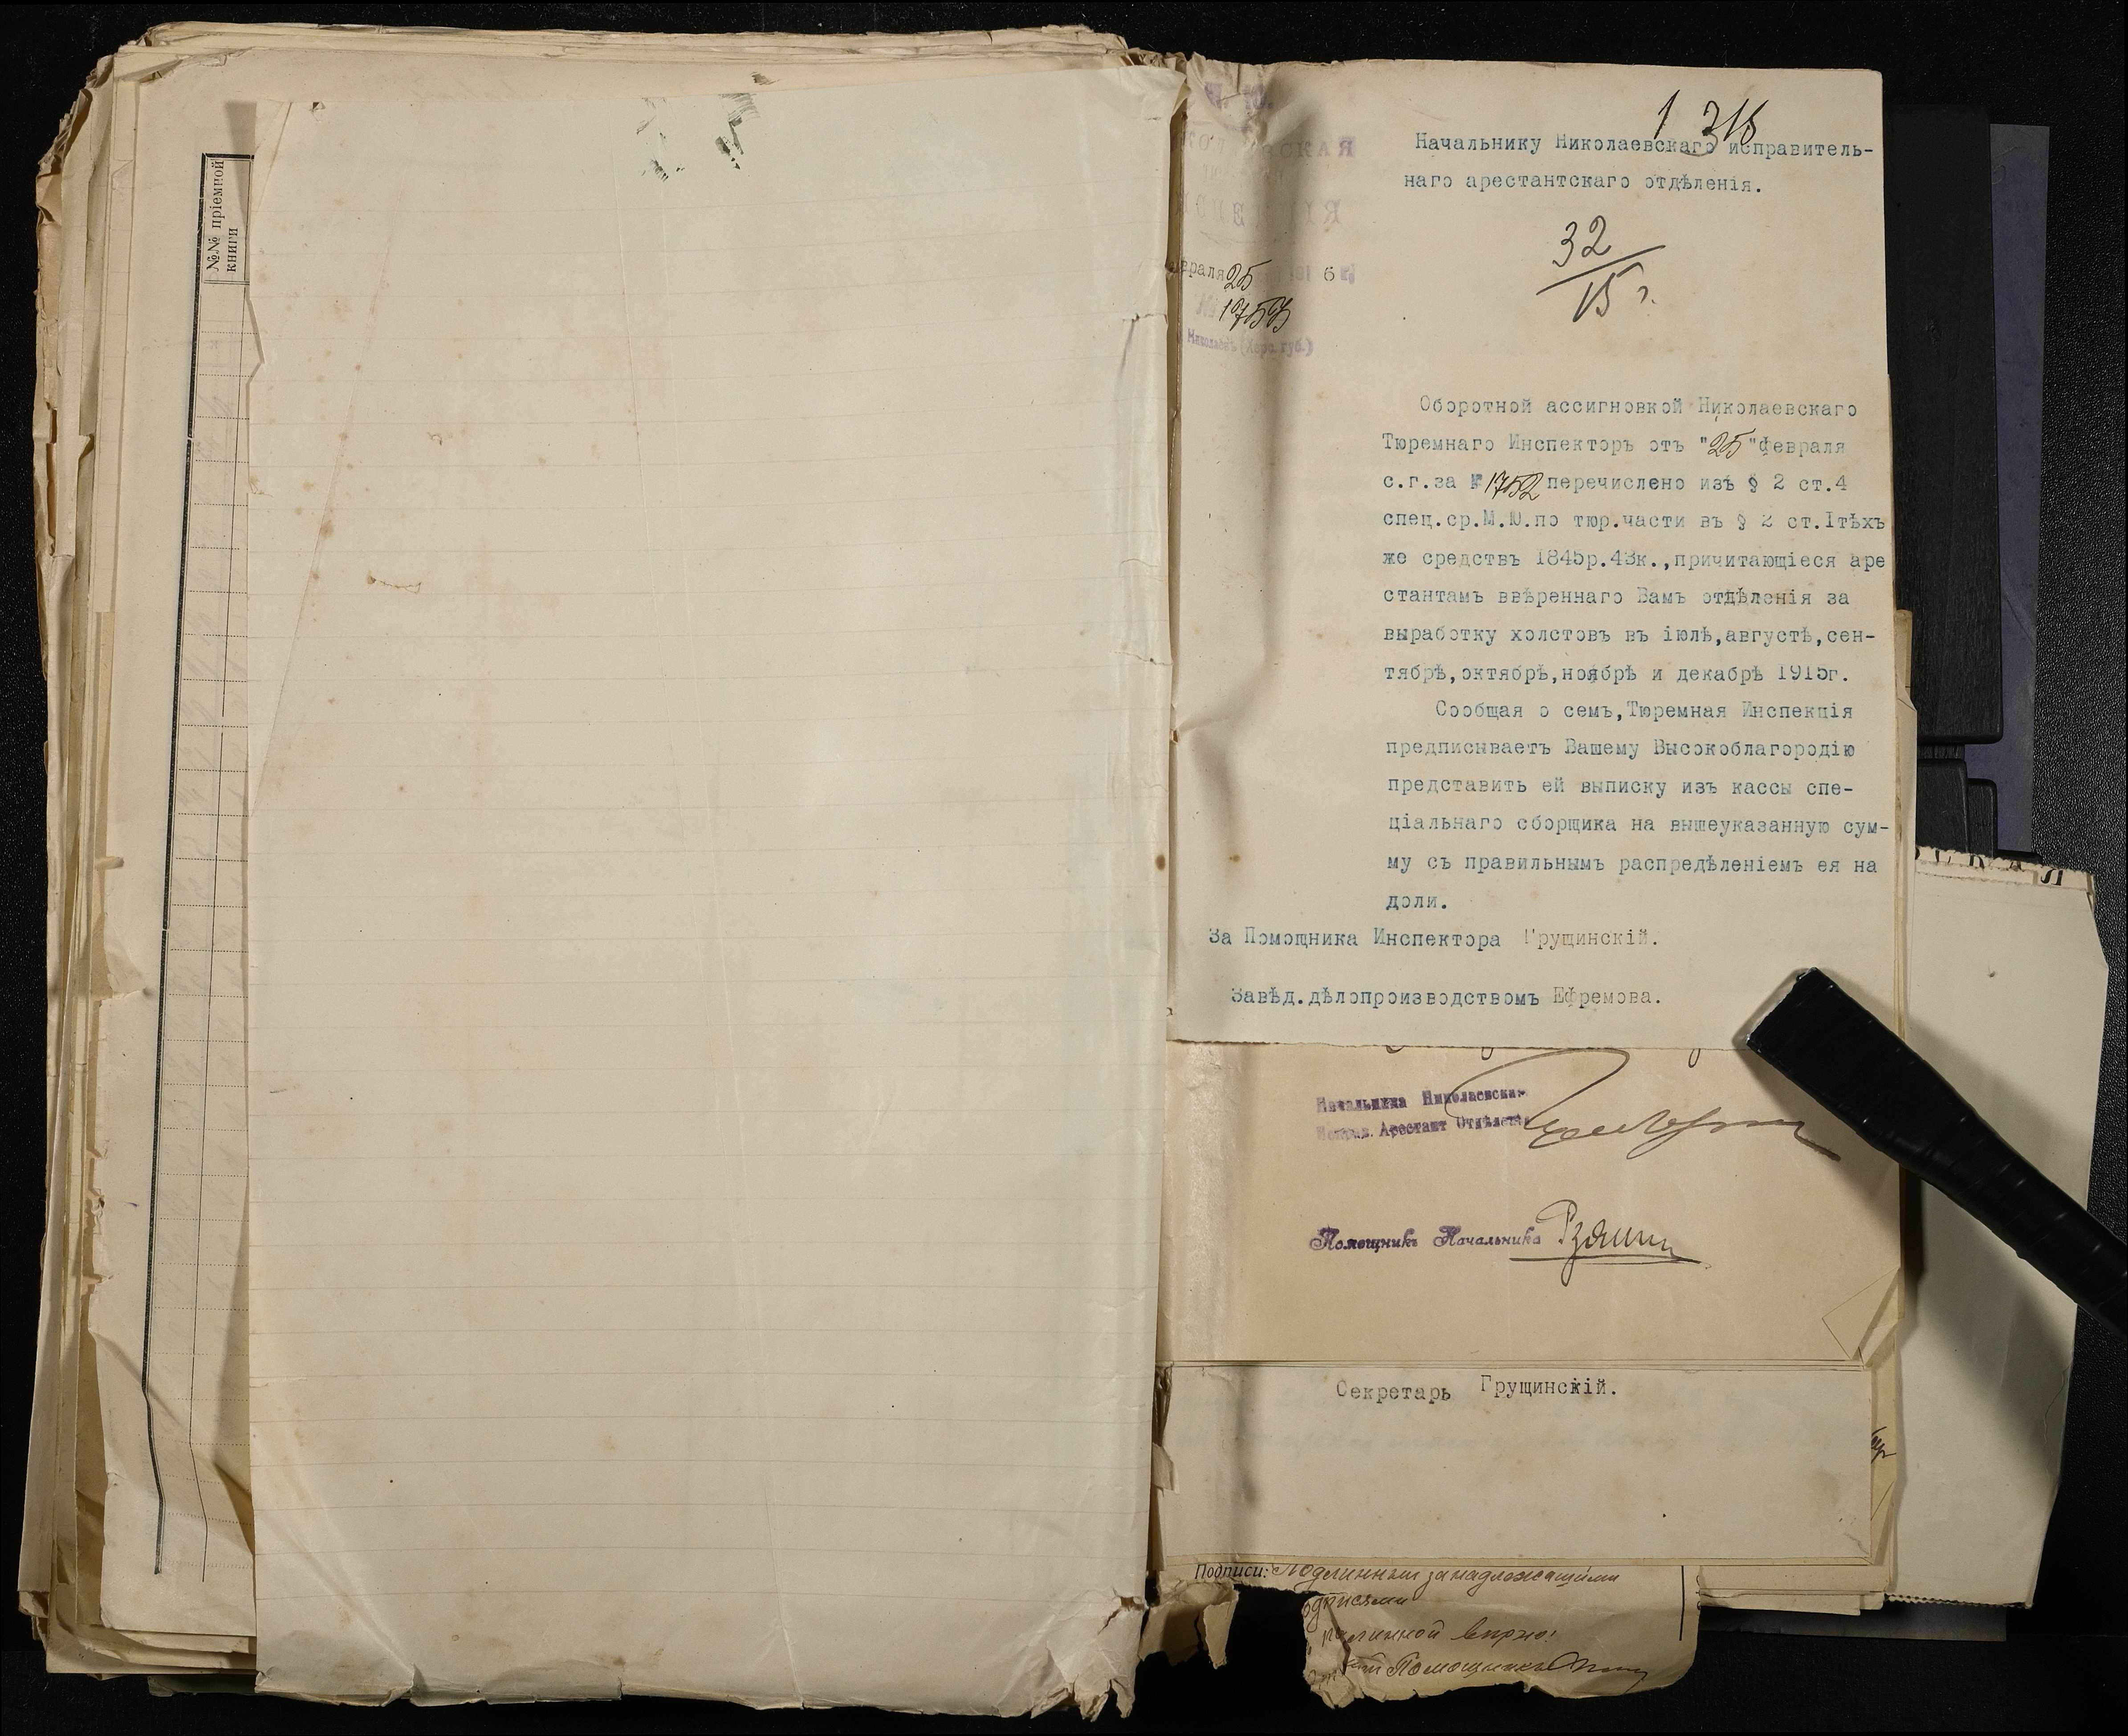 №№ пріемной
книги
1 316
Начальнику Николаевскаго исправитель-
наго арестантскаго отдѣленія.
32
15 г.
враля 25 191 6 г.
№ 1757
Николаевъ (Херс. губ.)
Оборотной ассигновкой Николаевскаго
Тюремнаго Инспекторъ отъ "25"февраля
с.г.за № 1752 перечислено изъ § 2 ст.4
спец.ср.М.Ю.по тюр.части въ § 2 ст.Iтѣхъ
же средствъ 1845р.43к.,причитающіеся аре
стантамъ ввѣреннаго Вамъ отдѣленія за
выработку холстовъ въ іюлѣ,августѣ,сен-
тябрѣ,октябрѣ,ноябрѣ и декабрѣ 1915г.
Сообщая о семъ,Тюремная Инспекція
предписываетъ Вашему Высокоблагородію
представить ей выписку изъ кассы спе-
ціальнаго сборщика на вышеуказанную сум-
му съ правильнымъ распредѣленіемъ ея на
доли.
За Помощника Инспектора Грущинскій.
Завѣд.дѣлопроизводствомъ Ефремова.
Начальника Николаевскаго
Исправ. Арестант Отдѣленія
Помощникъ Начальника
Секретарь Грущинскій.
Подписи: Подлинный за надлежащими
одписями
линной вѣрно!
Помощникъ